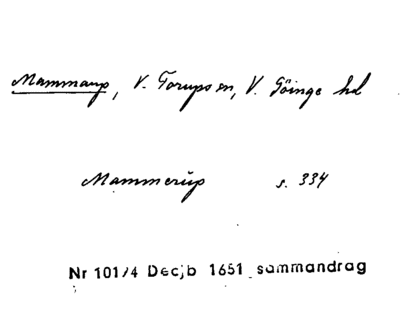 Mammarp, V. Torups sn, V. Göinge hd
Mammerup s. 334
Nr 101/4 Decjb 1651 sammandrag